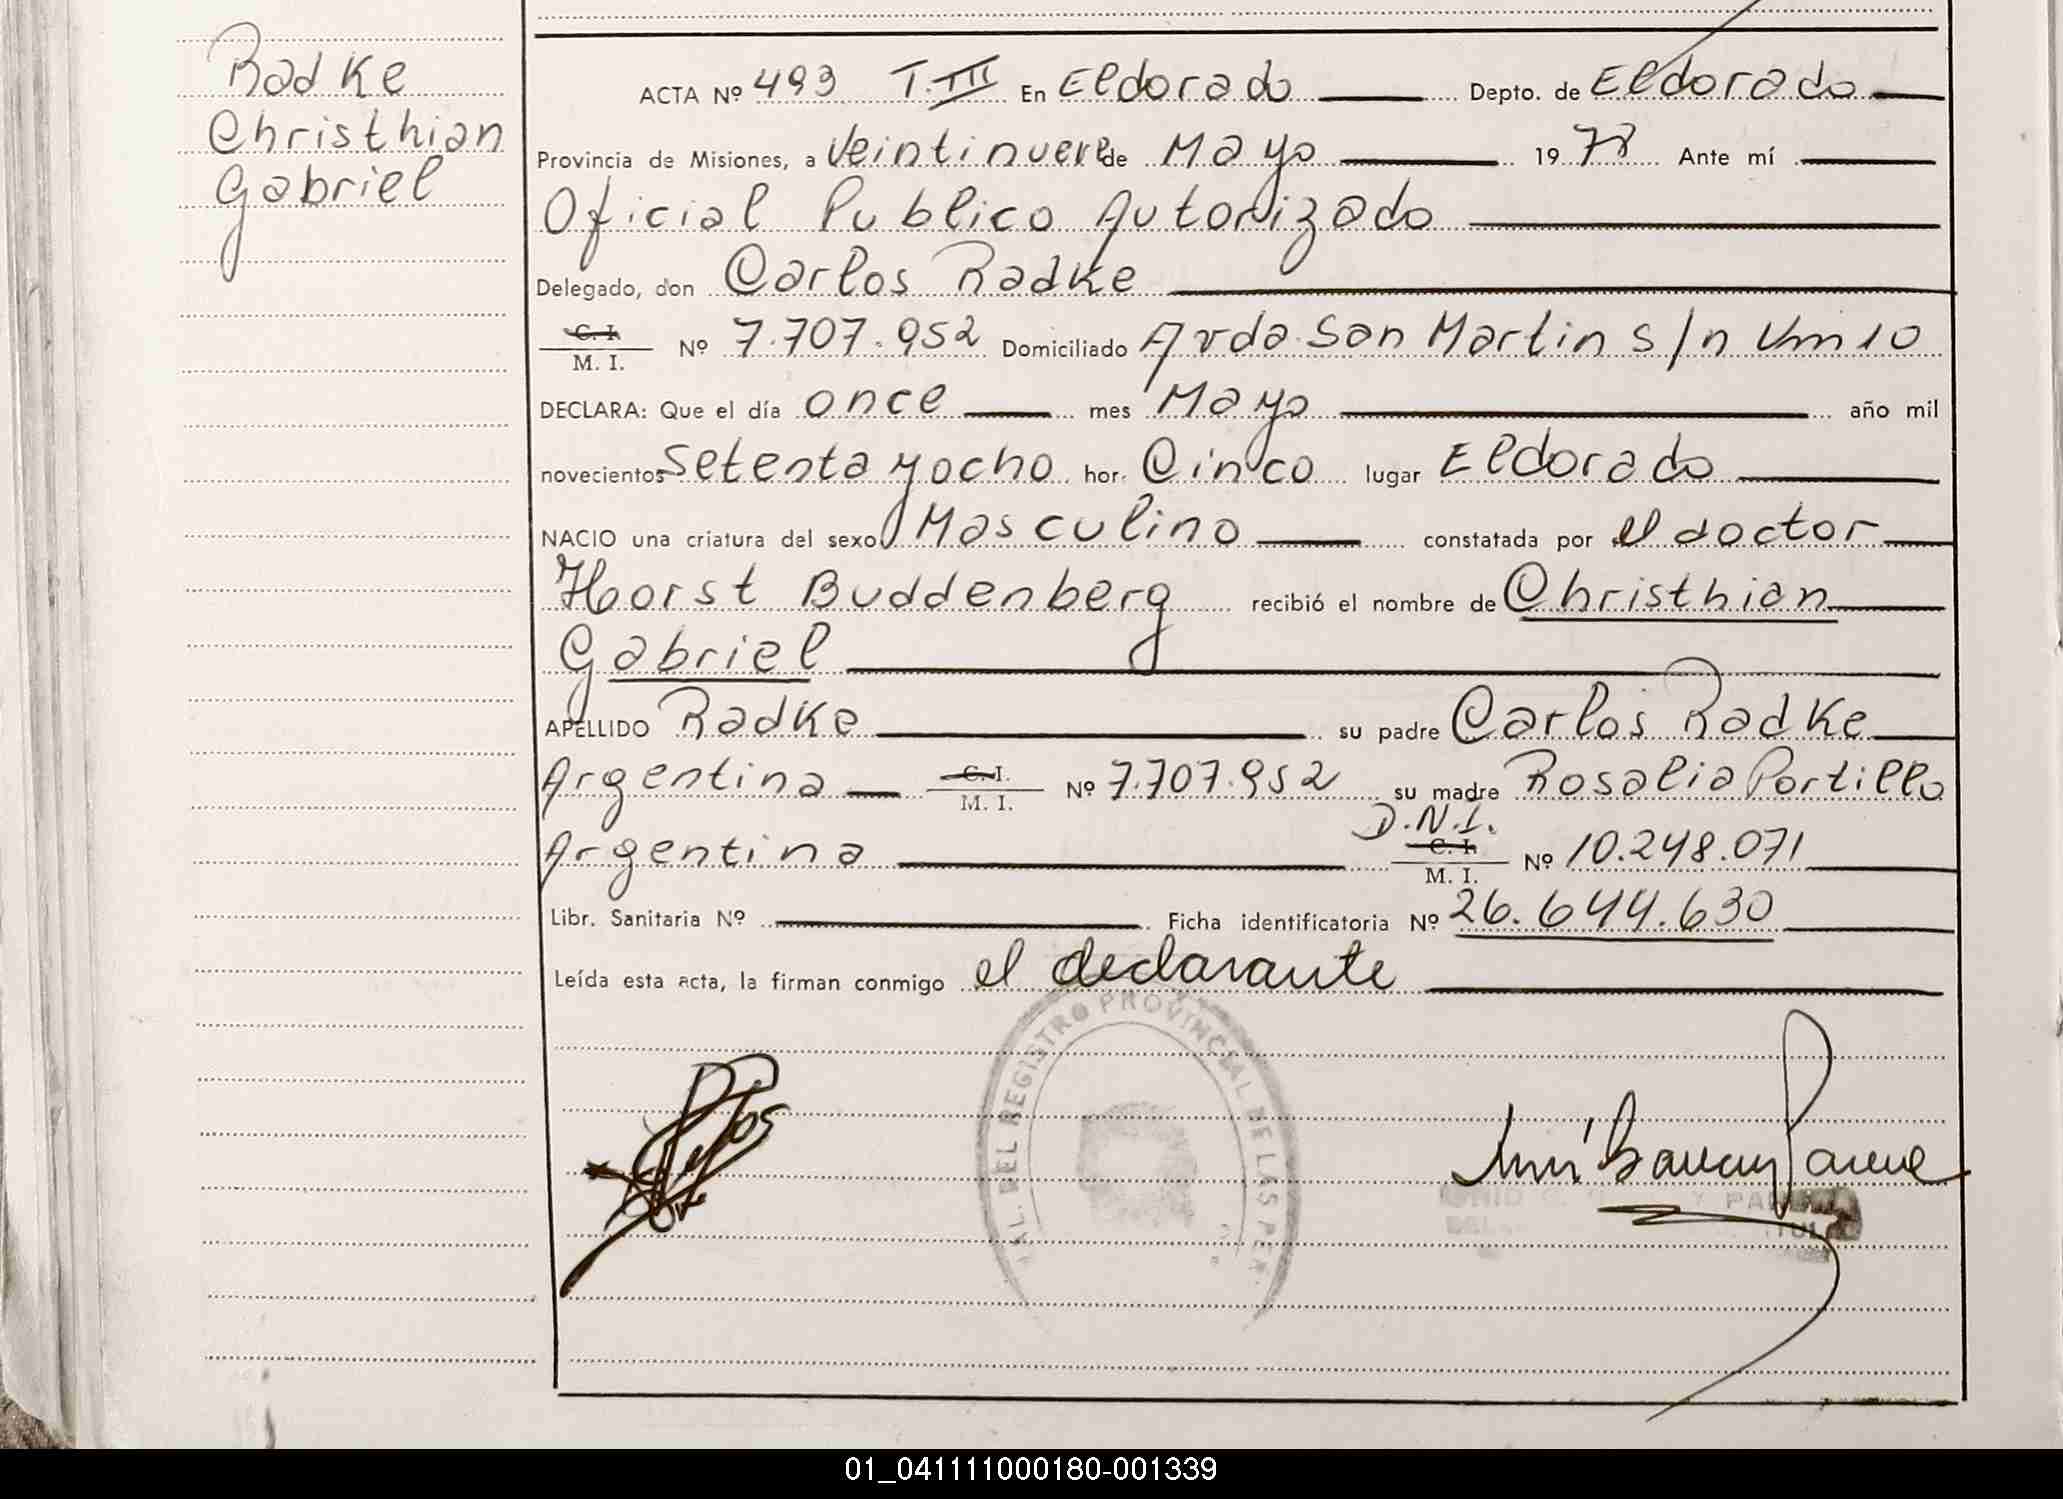 Radke
Christhian
Gabriel
ACTA Nº 493 T.III En Eldorado Depto. de Eldorado
Provincia de Misiones, a Veintinueve de Mayo 1978 Ante mí
Oficial Publico Autorizado
Delegado, don Carlos Radke
C. I.
M. I. Nº 7.707.952 Domiciliado Avda San Martin s/n Km 10
DECLARA: Que el día once mes Mayo año mil
novecientos Setenta y ocho hor. Cinco lugar Eldorado
NACIO una criatura del sexo Masculino constatada por el doctor
Horst Buddenberg recibió el nombre de Christhian
Gabriel
APELLIDO Radke su padre Carlos Radke
Argentina C. I. M. I. Nº 7.707.952 su madre Rosalia Portillo
D.N.I.
Argentina C. I. M. I. Nº 10.248.071
Libr. Sanitaria Nº Ficha identificatoria Nº 26.644.630
Leída esta acta, la firman conmigo el declarante
DEL REGISTRO PROVINCIAL DE LAS PER.
01_041111000180-001339